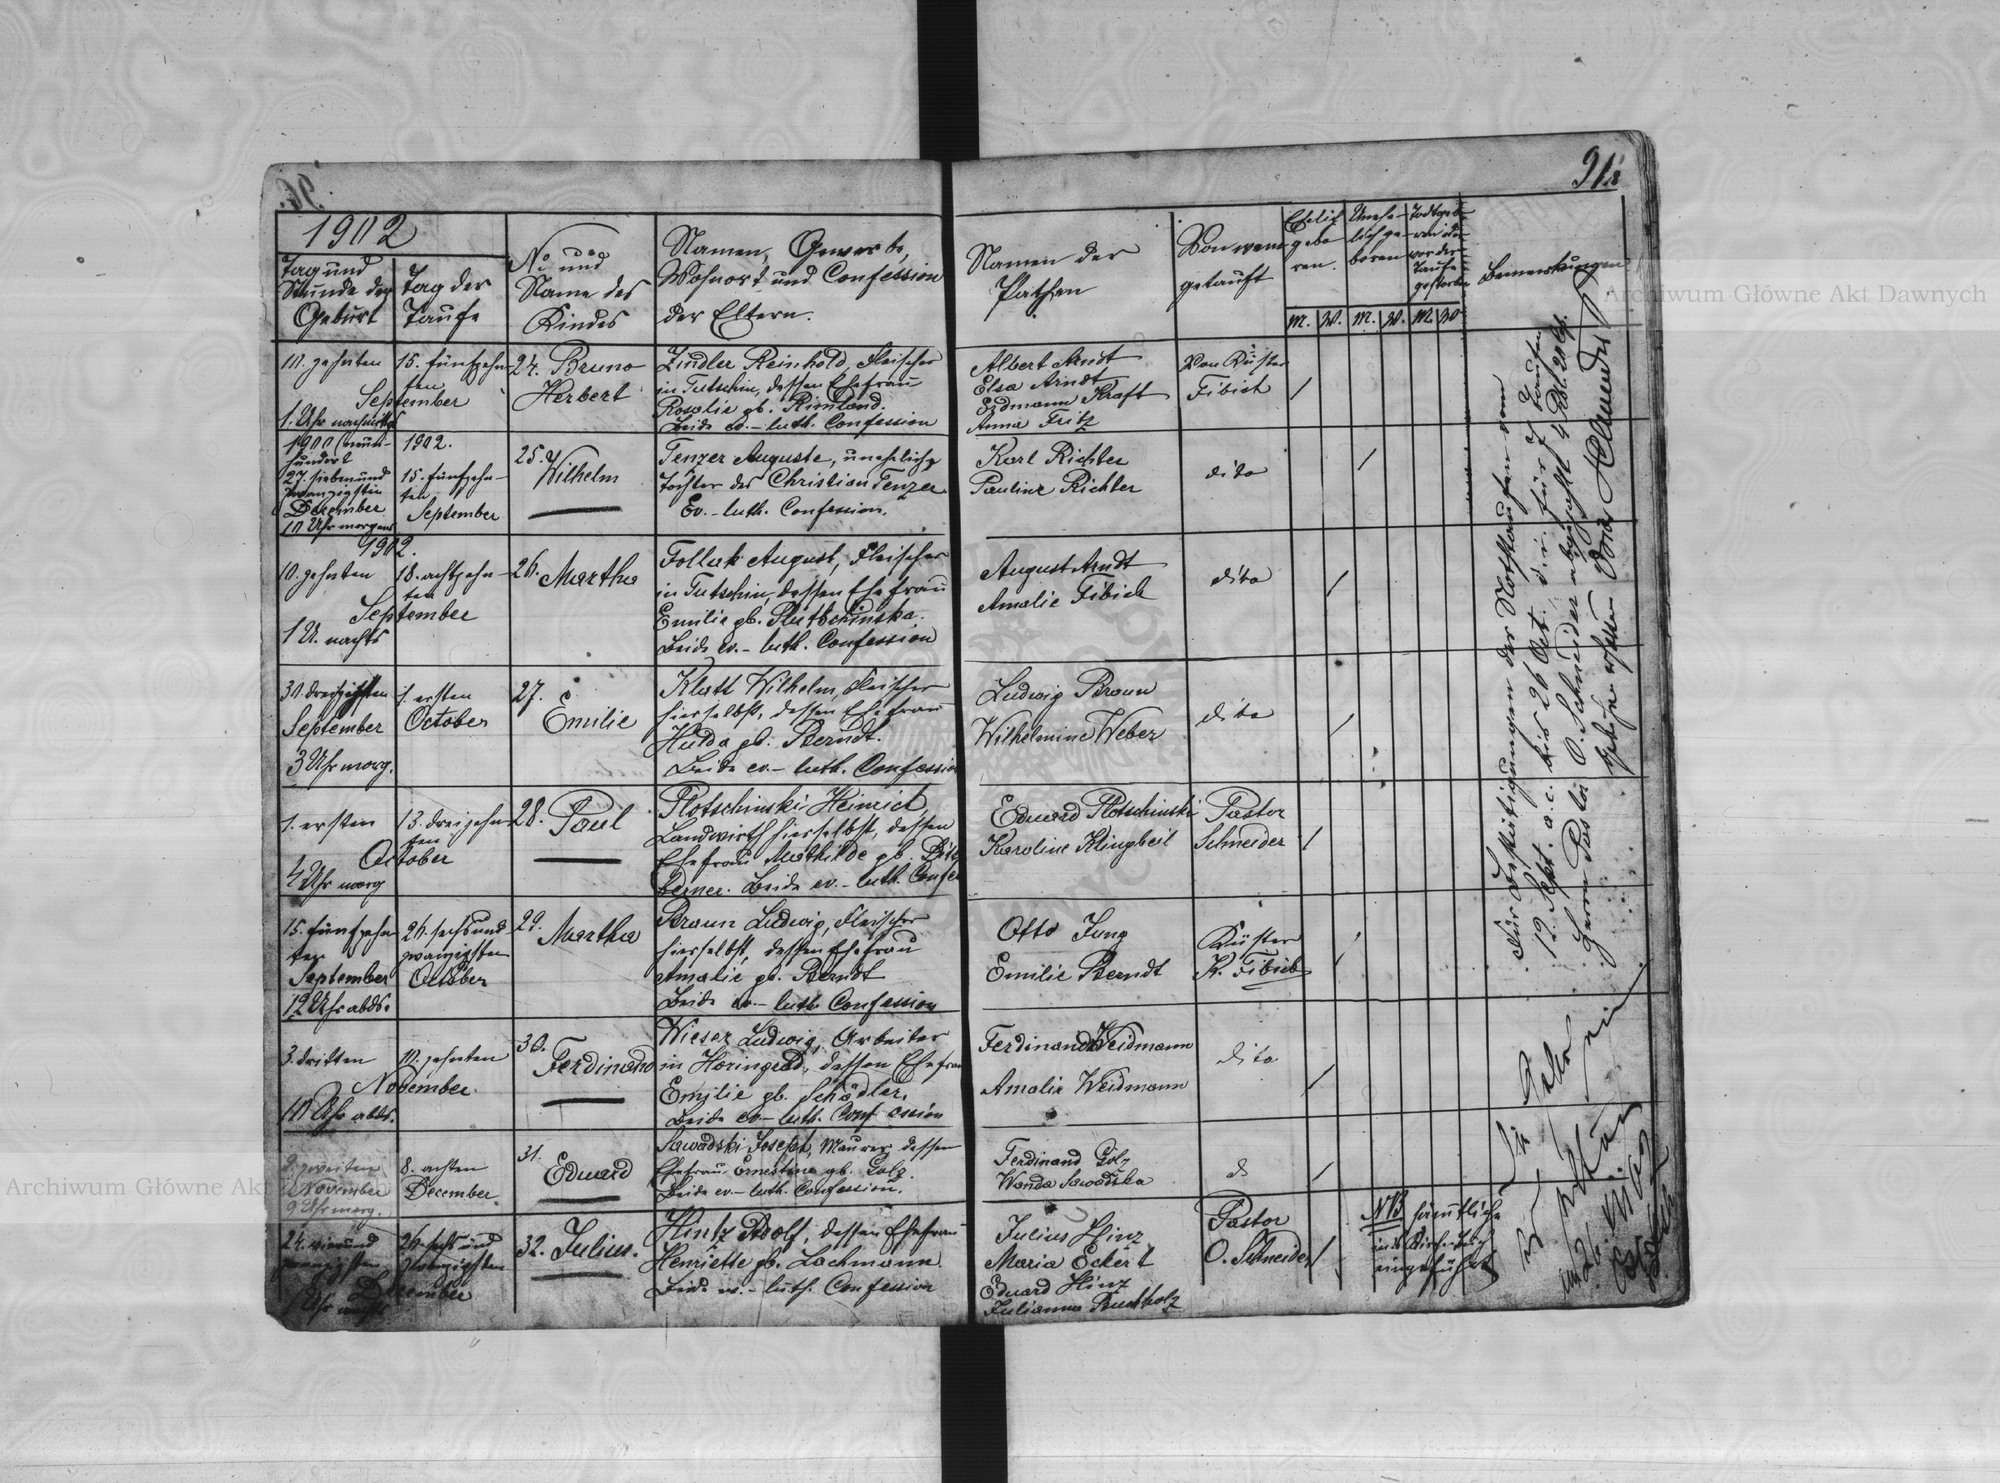 91.
1902
Tag und
Stunde der
Geburt
Tag der
Taufe
No und
Name des
Kindes
Namen, Gewerbe,
Wohnort und Confession
der Eltern.
Namen der
Pathen
Von wem
getauft
Ehelich
gebo
ren.
Unehe-
lich ge-
boren
Todtgeb.
vor der
Taufe
gestorben
Bemerkungen
M. W. M. W. M. W.
10. zehnten
September
1. Uhr nachmittg
15. fünfzehn-
ten
24. Bruno
Herbert
Zindler Reinhold, Fleischer
in Tutschin, dessen Ehefrau
Rosalie gb. Rimland.
Beide ev.-luth. Confession
Albert Arndt
Elsa Arndt
Erdmann Kraft
Anna Fritz
Von Küster
Fibich
1900 (neun-
hundert
27. siebenund
zwanzigsten
December
10 Uhr morgens
1902.
15. fünfzehn-
ten
September
25.
Wilhelm
Tenzer Auguste, uneheliche
Tochter des Christian Tenzer
Ev.-luth. Confession.
Karl Richter
Pauline Richter
dito
1902.
10. zehnten
September
1 U. nachts
18. achtzehn-
ten
26. Martha
Follak August, Fleischer
in Tutschin, dessen Ehefrau
Emilie gb. Plutschinska.
Beide ev.-luth. Confession
August Arndt
Amalie Fibich
dito
30. dreizigsten
September
3 Uhr morg.
1. ersten
October
27.
Emilie
Klatt Wilhelm, Fleischer
hierselbst, dessen Ehefrau
Hulda gb. Berndt.
Beide ev.-luth. Confession
Ludwig Braun
Wilhelmine Weber
dito
1. ersten
October
4 Uhr morg
13. dreizehn-
ten
28. Paul
Plotschinski Heinrich,
Landwirth hierselbst, dessen
Ehefrau Mathilde gb.
Beide ev.-luth. Confes
Eduard Plotschinski
Karoline Klingbeil
Pastor
Schneider
15. fünfzehn
ten
September
12 Uhr abds.
26. sechsund
zwanzigsten
October
29.
Martha
Braun Ludwig, Fleischer
hierselbst, dessen Ehefrau
Amalie gb. Berndt
Beide ev-luth. Confession
Otto Jung
Emilie Berndt
Küster
K. Fibich
3. dritten
November
10 Uhr abds.
10. zehnten
30.
Ferdinand
Wieser Ludwig, Arbeiter
in Horingrad, dessen Ehefrau
Emilie gb. Schädler.
Beide ev-luth. Confession
Ferdinand Weidmann
Amalie Weidmann
dito
2. zweiten
November
9 Uhr morg.
8. achten
December
31.
Eduard
Sawadski Joseph, Maurer, dessen
Ehefrau Ernestine gb. Golz.
Beide ev-luth. Confession.
Ferdinand Golz
Wanda Sawadska
d
24. vierund
zwanzigsten
December
26. sechsund
zwanzigsten
32. Julius.
Hintz Adolf, dessen Ehefrau
Henriette gb. Lachmann
Beide ev.-luth. Confession
Julius Hinz
Maria Eckert
Eduard Hinz
Julianna Buchholz
Pastor
O. Schneider
Für Bestätigungen der Nothtaufen vom
12. Sept. a. c. bis 26 Oct. d. i. für 7 Taufen
Herrn Pastor O. Schneider
NB sämmtliche
ins Kirchenbuch
eingeführt
Archiwum Główne Akt Dawnych
Archiwum Główne Akt